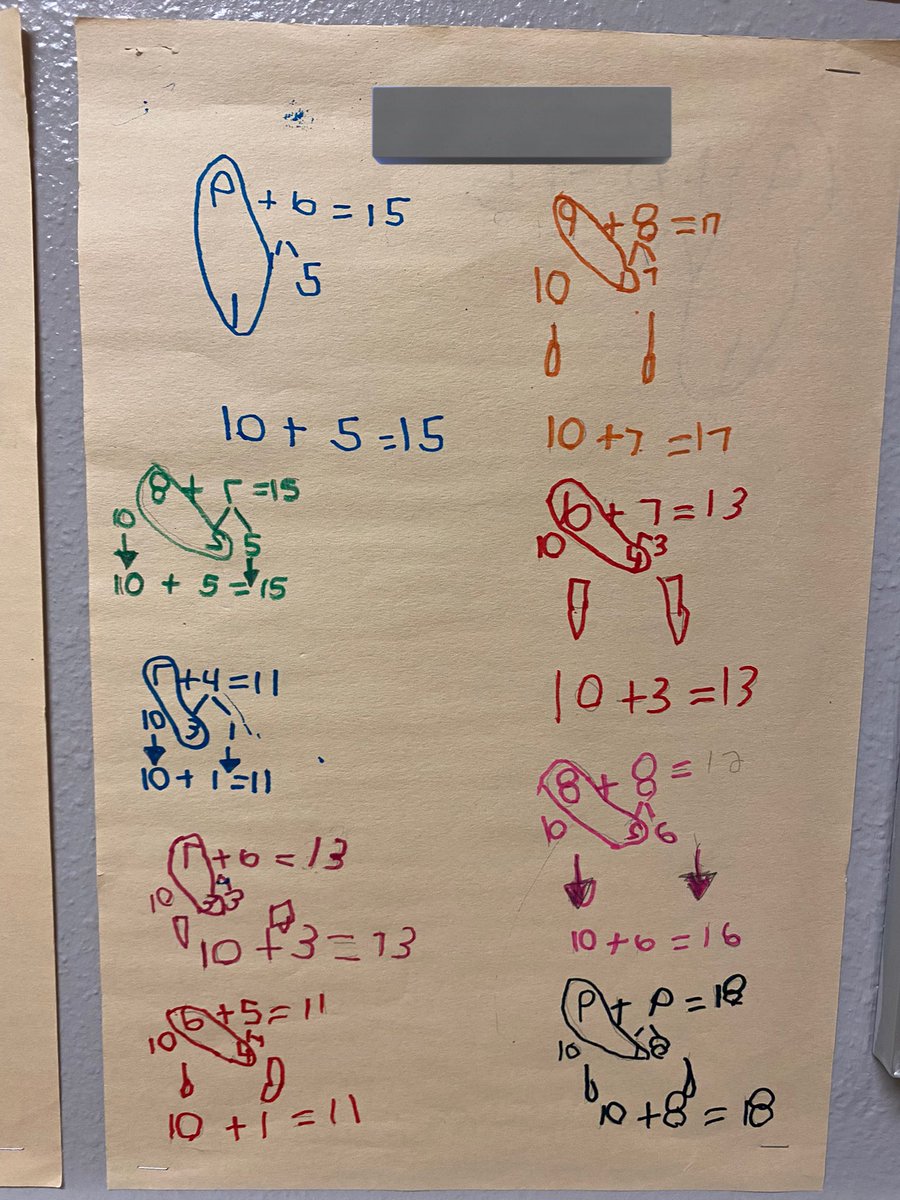 9 + 6 = 15
1 5
10 + 5 = 15
8 + 7 = 15
10 5
10 + 5 = 15
7 + 4 = 11
10 3 1
10 + 1 = 11
7 + 6 = 13
10 3 3
10 + 3 = 13
6 + 5 = 11
10
10 + 1 = 11
9 + 8 = 17
10 7
10 + 7 = 17
6 + 7 = 13
10 3
10 + 3 = 13
8 + 8 =
10 6
10 + 6 = 16
9 + 9 = 18
10 8
10 + 8 = 18